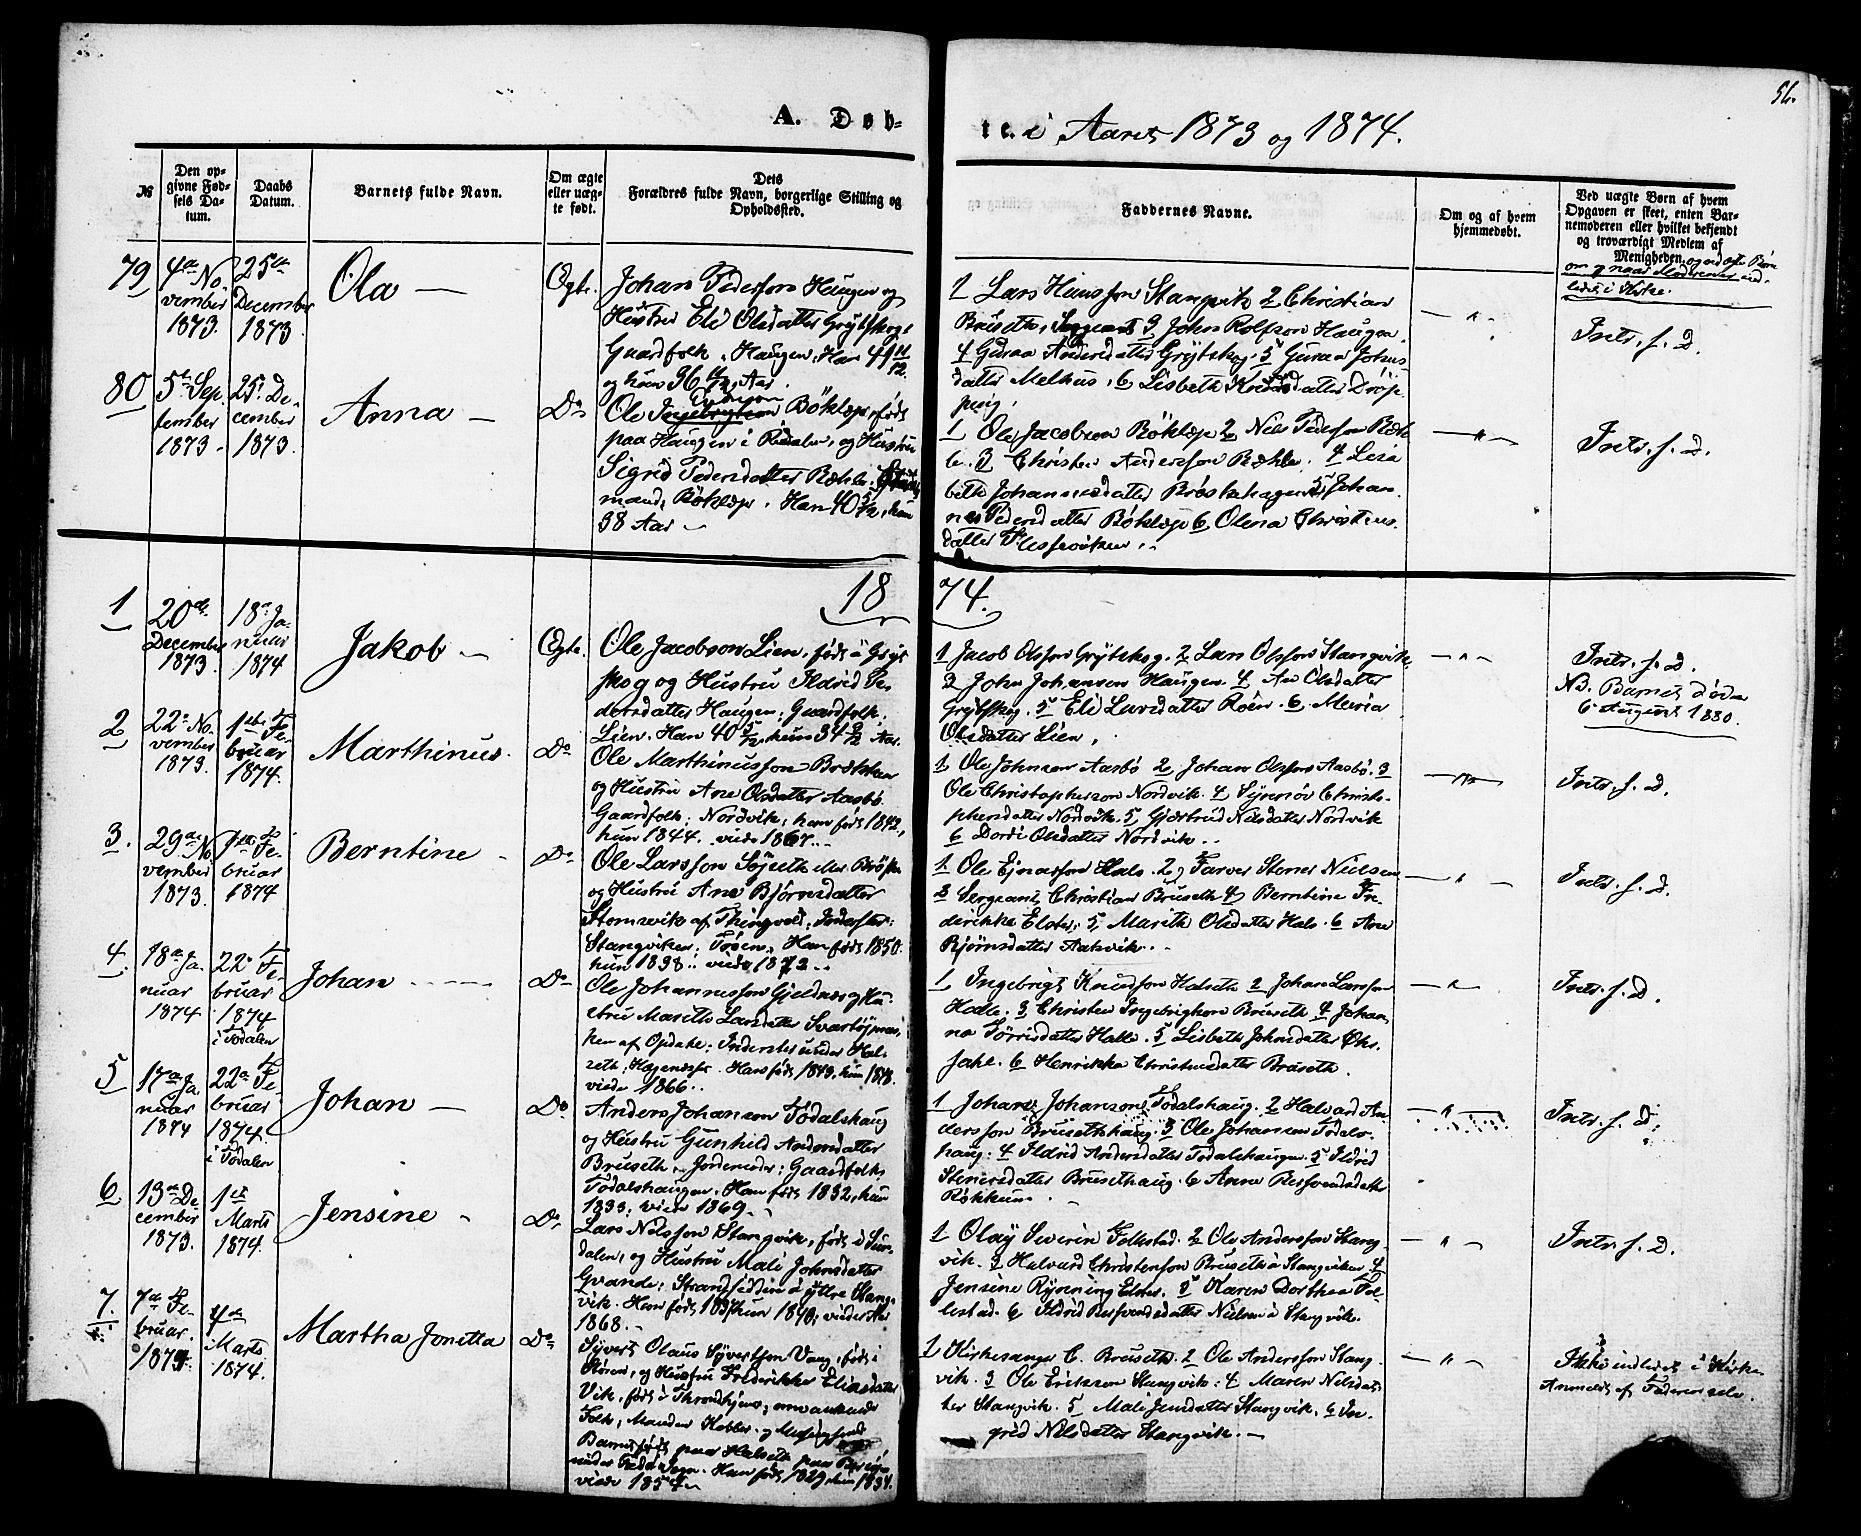 56.
A. Døb-
te i Aaret 1873 og 1874.
№
Den op-
givne Fød-
sels Da-
tum.
Daabs
Datum.
Barnets fulde Navn.
Om ægte
eller uæg-
te født.
Dets
Forældres fulde Navn, borgerlige Stilling og
Opholdssted.
Faddernes Navne.
Om og af hvem
hjemmedøbt.
Ved uægte Børn af hvem
Opgaven er skeet, enten Bar-
nemoderen eller hvilket bekjendt
og troværdigt Medlem af
Menigheden
om og naar Moderen er ind-
ledet i Kirke.
79
4de No-
vember
1873.
25de
December
1873.
Ola
Ægte.
Johan Pedersson Haugen og
Hustru Eli Olsdatter Grytskog:
Gaardfolk, Haugen. Han 49 11/12
og hun 36 Aar.
1 Lars Hansson Stangvik 2 Christian
Bruseth, Sergeant 3 John Rolfson Haugen,
4 Guraa Andersdatter Grytskog, 5 Guraa Johns-
datter Melhus, 6 Lisbeth datter Drøp-
ping,
"
Intr. f. D.
80
5te Sep-
tember
1873.
25 De-
cember
1873.
Anna
Do
Ole Bøklep, født
paa Haugen i Rindalen, og Hustru
Sigrid Pedersdatter Bæhle:
mand, Bøklep. Han 40 5/12, hun
38 Aar
1 Ole Jacobson Bøklep 2 Nils Pederson Bæh-
le. 3 Christen Andersson Bæhle. 4 Lisa-
beth Johannesdatter Brøskehagen 5 Johan-
na Pedersdatter Bøklep 6 Olena Christens-
datter
"
Intr. f. D.
1874.
1
20de
December
1873.
18de Ja-
nuar
1874
Jakob
Ægte.
Ole Jacobson Lien, født i Gryt-
skog og Hustru Ildrid Pe-
dersdatter Haugen: Gaardfolk,
Lien. Han 40 5/12, hun 34 9/12 Aar.
1 Jacob Olsson Grytskog. 2 Lars Olsson Stangvik.
3 John Johansen Haugen. 4 Ane Olsdatter
Grytskog. 5 Eli Larsdatter Røen. 6 Maria
Olsdatter Lien,
"
Intr. f. D.
NB. Barnet døde
6 August 1880.
2
22de No-
vember
1873.
1ste Fe-
bruar
1874.
Marthinus.
Do
Ole Marthinusson Brækken
og Hustru Ane Olsdatter Aasbø.
Gaardfolk; Nordvik; han født 1842,
hun 1844. viede 1867.
1 Ole Johnson Aasbø 2 Johan Olsson Aasbø. 3
Ole Christopherson Nordvik. 4 Synnøv Christo-
phersdatter Nordvik. 5 Gjertrud Nilsdatter Nordvik
6 Dordi Olsdatter Nordvik.
"
Intr. f. D.
3.
29de No-
vember
1873.
1ste Fe-
bruar
1874
Berntine
Do
Ole Larsson Søyseth
og Hustru Ane Bjørnsdatter
Stomsvik af Thingvold, Inderster:
Stangviken; Trøen. Han født 1850.
hun 1838. viede 1872.
1 Ole Ejnarson Hals. 2 Farver Stener Nielsen
3 Sergeant Christian Bruseth 4 Berntine Fre-
derikke Elster, 5 Marith Olsdatter Hals. 6 Ane
Bjørnsdatter Aakvik.
"
Intr. f. D.
4.
18de Ja-
nuar
1874
22de Fe-
bruar
1874
i Todalen
Johan
Do
Ole Johannesson Gjeldnes og Hu-
stru Marith Larsdatter
af Opdale: Inderster under Hal-
seth; Hagenæsset. Han født 1843, hun 1838.
viede 1866.
1 Ingebrigt Knudson Halseth 2 Johan Larsson
Halle. 3 Christen Ingebrigtson Bruseth 4 Johan-
na Sørrisdatter Halle. 5 Lisbeth Johnsdatter Øks-
jale. 6 Henrikka Christensdatter Bruseth.
"
Intr. f. D.
5
17de Ja-
nuar
1874
22de Fe-
bruar
1874.
i Todalen
Johan
Do
Anders Johanson Todalshaug
og Hustru Gunhild Andersdatter
Bruseth, Jordemoder: Gaardfolk,
Todalshaugen. Han født 1832, hun
1833; viede 1869.
1 Johan Johanson Todalshaug. 2 Halvard An-
dersson Brusethaug. 3 Ole Johanson Todals-
haug: 4 Ildrid Andersdatter Todalshaugen. 5 Ildrid
Stenersdatter Brusethaug. 6 Anne Resvendsdatter
Røkkum.
"
Intr. f. D.
6
13de De-
cember
1873.
1ste
Marts
1874.
Jensine
Do
Lars Nilsson Stangvik, født i Sur-
dalen, og Hustru Mali Johnsdatter
Qvande; Strandsiddere i ytre Stang-
vik. Han født hun 1840; viede
1868.
1 Olay Severin Follestad. 2 Ole Andersson Stang-
vik. 3 Halvard Christenson Bruseth i Stangviken. 4
Jensine Ryning Elster. 5 Karen Dorthea Fol-
lestad. 6 Ildrid Resvendsdatter Nielsen i Stangvik.
"
Intr. f. D.
7.
7de Fe-
bruar.
1874.
4de
Marts
1874.
Martha Jonetta
Do
Syvert Olaus Syvertson Vang, født i
Støren, og Hustru Frederikke Eliasdatter
Vik, født i Throndhjem; omvankende
Folk; Manden Kobber- og
Barnet født paa Halseth paa
. Han født 1829, hun 1834.
viede 1854.
1 Kirkesanger C. Bruseth. 2 Ole Andersson Stang-
vik. 3 Ole Erikson Stangvik: 4 Maren Nilsdat-
ter Stangvik. 5 Mali Jensdatter Stangvik. 6 In-
grid Nilsdatter Stangvik.
"
Ikke indledet i Kirke
Anmeldt af Faderen selv.